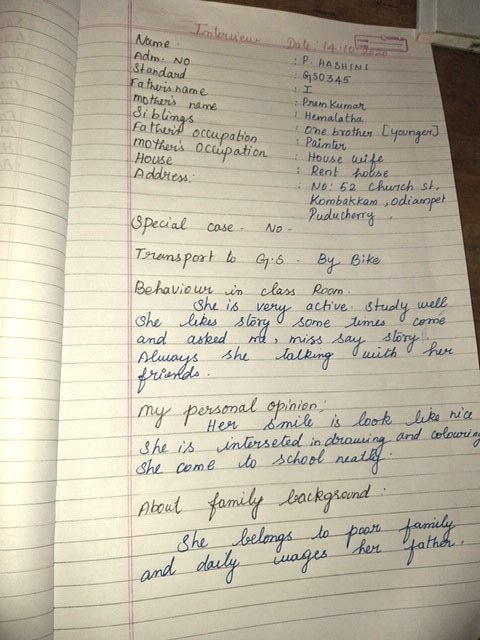 Interview Date 14.10.2020
Name : P. HASHINI
Adm. NO : GS0345
Standard : I
Father's name : Premkumar
mother's name : Hemalatha
Siblings : One brother [younger]
Father's occupation : Painter
mother's occupation : House wife
House : Rent house
Address: : NO: 52 Church st,
Kombakkam, Odiampet
Puducherry.
Special case - No -
Transport to G.S. By Bike
Behaviour in class Room.
She is very active. Study well
She likes story some times come
and asked me, miss say story.
Always she talking with her
friends.
My personal opinion:
Her smile is look like nice
She is interseted in drawing and colouring
She come to school neatly.
About family background:
She belongs to poor family
and daily wages her father.